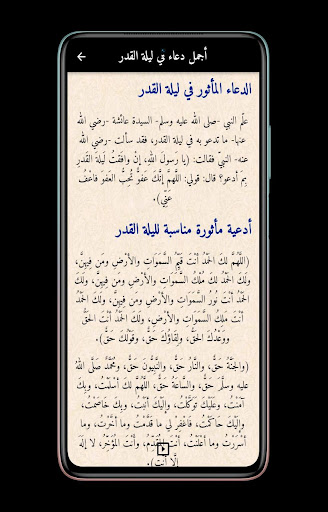 أجمل دعاء في ليلة القدر
الدعاء المأثور في ليلة القدر
علّم النبي -صلى الله عليه وسلم- السيدة عائشة -رضي الله
عنها- ما تدعو به في ليلة القدر، فقد سألت -رضي الله
عنه- النبيّ فقالت: (يا رَسولَ اللهِ، إنْ وافَقتُ لَيلةَ القَدرِ
بِمَ أدعو؟ قال: قولي: اللَّهمَّ إنَّكَ عَفوٌّ تُحِبُّ العَفوَ فاعْفُ
عَنِّي).
أدعية مأثورة مناسبة لليلة القدر
(اللَّهُمَّ لكَ الحَمْدُ أنْتَ قَيِّمُ السَّمَوَاتِ والأرْضِ ومَن فِيهِنَّ،
ولَكَ الحَمْدُ لكَ مُلْكُ السَّمَوَاتِ والأرْضِ ومَن فِيهِنَّ، ولَكَ
الحَمْدُ أنْتَ نُورُ السَّمَوَاتِ والأرْضِ ومَن فِيهِنَّ، ولَكَ الحَمْدُ
أنْتَ مَلِكُ السَّمَوَاتِ والأرْضِ، ولَكَ الحَمْدُ أنْتَ الحَقُّ
ووَعْدُكَ الحَقُّ، ولِقَاؤُكَ حَقٌّ، وقَوْلُكَ حَقٌّ).
(والجَنَّةُ حَقٌّ، والنَّارُ حَقٌّ، والنَّبِيُّونَ حَقٌّ، ومُحَمَّدٌ صَلَّى اللهُ
عليه وسلَّمَ حَقٌّ، والسَّاعَةُ حَقٌّ، اللَّهُمَّ لكَ أسْلَمْتُ، وبِكَ
آمَنْتُ، وعَلَيْكَ تَوَكَّلْتُ، وإلَيْكَ أنَبْتُ، وبِكَ خَاصَمْتُ،
وإلَيْكَ حَاكَمْتُ، فَاغْفِرْ لي ما قَدَّمْتُ وما أخَّرْتُ، وما
أسْرَرْتُ وما أعْلَنْتُ، أنْتَ المُقَدِّمُ، وأَنْتَ المُؤَخِّرُ، لا إلَهَ
إلَّا أنْتَ).